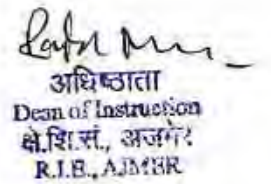 अधिष्ठाता
Dean of Instruction
क्षे.शि.सं., अजमेर
R.I.E., AJMER